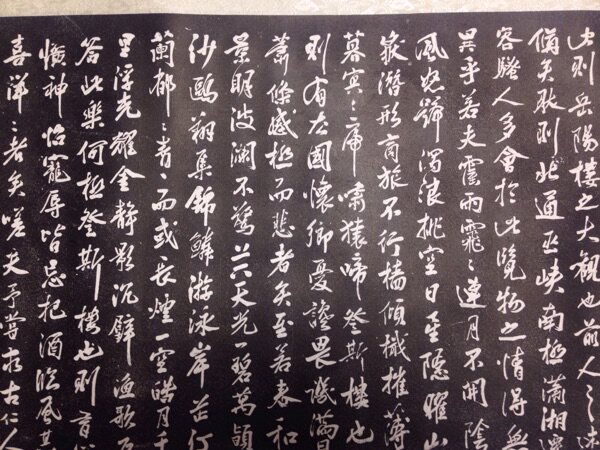 此則岳陽樓之大觀也前人之述
備矣然則北通巫峽南極瀟湘遷
客騷人多會於此覽物之情得無
異乎若夫霪雨霏〻連月不開陰
風怒號濁浪排空日星隱曜山
嶽潛形商旅不行檣傾檝摧薄
暮冥〻虎嘯猿啼登斯樓也
則有去國懷鄉憂讒畏譏滿
蕭條感極而悲者矣至若春和
景明波瀾不驚上下天光一碧萬頃
沙鷗翔集錦鱗游泳岸芷汀
蘭郁〻青〻而或長煙一空皓月千
里浮光耀金靜影沉璧漁歌互
答此樂何極登斯樓也則有
曠神怡寵辱皆忘把酒臨風其
喜洋〻者矣嗟夫予嘗求古仁人